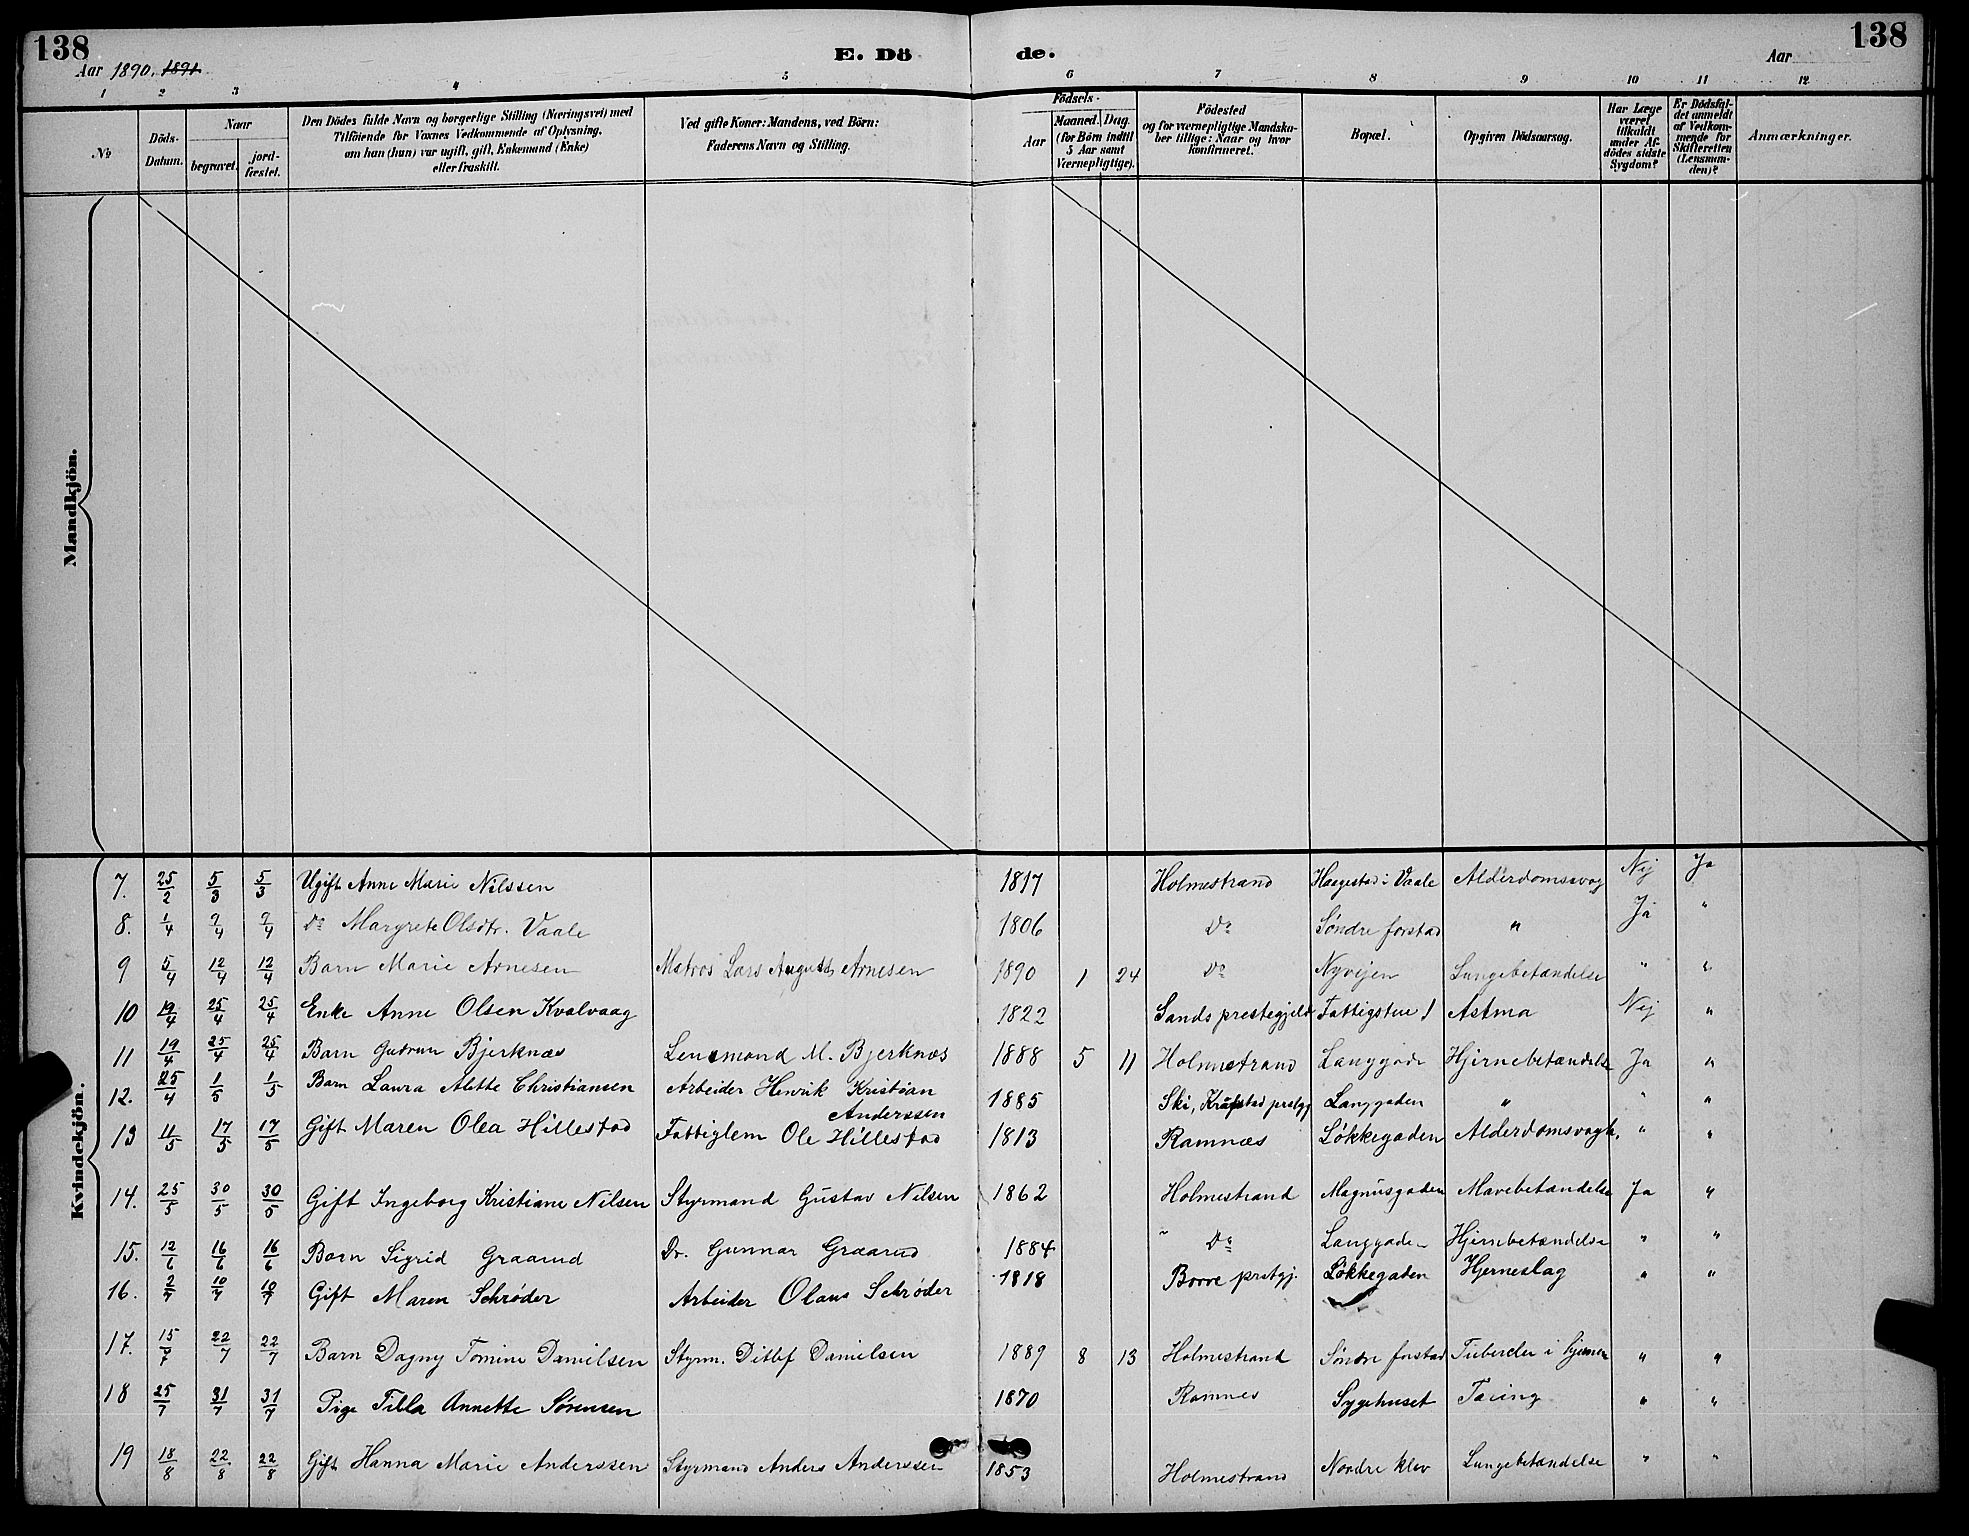 138 E. Dö de. 138
Aar 1890. 1891. Aar
1 2 3 4 5 6 7 8 9 10 11 12
№ Döds-Datum. Naar begravet. jordfæstet. Den Dödes fulde Navn og borgerlige Stilling (Næringsvei) med Tilföiende for Voxnes Vedkommende af Oplysning, om han (hun) var ugift, gift, Enkemand (Enke) eller fraskilt. Ved gifte Koner: Mandens, ved Börn: Faderens Navn og Stilling. Födsels- Aar Maaned. Dag. (for Börn indtil 5 Aar samt Værnepligtige). Födested og for værnepligtige Mandskaber tillige: Naar og hvor konfirmeret. Bopæl. Opgiven Dödsaarsag. Har Læge været tilkaldt under Afdödes sidste Sygdom? Er Dödsfaldet anmeldt af Vedkommende for Skifteretten (Lensmanden)? Anmærkninger.
Mandkjön.
Kvindekjön.
7. 25/2 5/3 5/3 Ugift Anne Marie Nilssen 1817 Holmestrand Haegestad i Vaale Alderdomssvag Nej Ja
8. 1/4 7/4 7/4 Do Margrete Olsdtr. Vaale 1806 Do Søndre forstad " Ja "
9 5/4 12/4 12/4 Barn Marie Arnesen Matros Lars August Arnesen 1890 1 24 Do Nyvejen Lungebetændelse " "
10 19/4 25/4 25/4 Enke Anne Olsen Kvalvaag 1822 Sands prestegjeld Fattigstue 1 Astma Nej "
11 19/4 25/4 25/4 Barn Gudrun Bjerknæs Lensmand M. Bjerknæs 1888 5 11 Holmestrand Langgade Hjirnebetændelse Ja "
12. 25/4 1/5 1/5 Barn Laura Alette Christiansen Arbeider Henrik Kristian Anderssen 1885 Ski, Kraakstad prstgj Langgaden " " "
13 11/5 17/5 17/5 Gift Maren Olea Hillestad Fattiglem Ole Hillestad 1813 Ramnæs Løkkegaden Alderdomsvagh. " "
14. 25/5 30/5 30/5 Gift Ingeborg Kristiane Nilsen Styrmand Gustav Nilsen 1862 Holmestrand Magnusgaden Mavebetændelse Ja "
15. 12/6 16/6 16/6 Barn Sigrid Graarud Dr. Gunnar Graarud 1884 Do Langgaden Hjirnbetændelse " "
16. 2/7 10/7 10/7 Gift Maren Schrøder Arbeider Olaus Schrøder 1818 Borre prstgj. Løkkegaden Hjerneslag " "
17. 15/7 22/7 22/7 Barn Dagny Tomine Danielsen Styrm. Ditlef Danielsen 1889 8 13 Holmestrand Søndre forstad Tuberder i hjernen " "
18 25/7 31/7 31/7 Pige Tilla Annette Sørensen 1870 Ramnes Sygehuset Tæring " "
19 18/8 22/8 22/8 Gift Hanna Marie Anderssen Styrmand Anders Anderssen 1853 Holmestrand Nordre klev Lungebetændelse " "